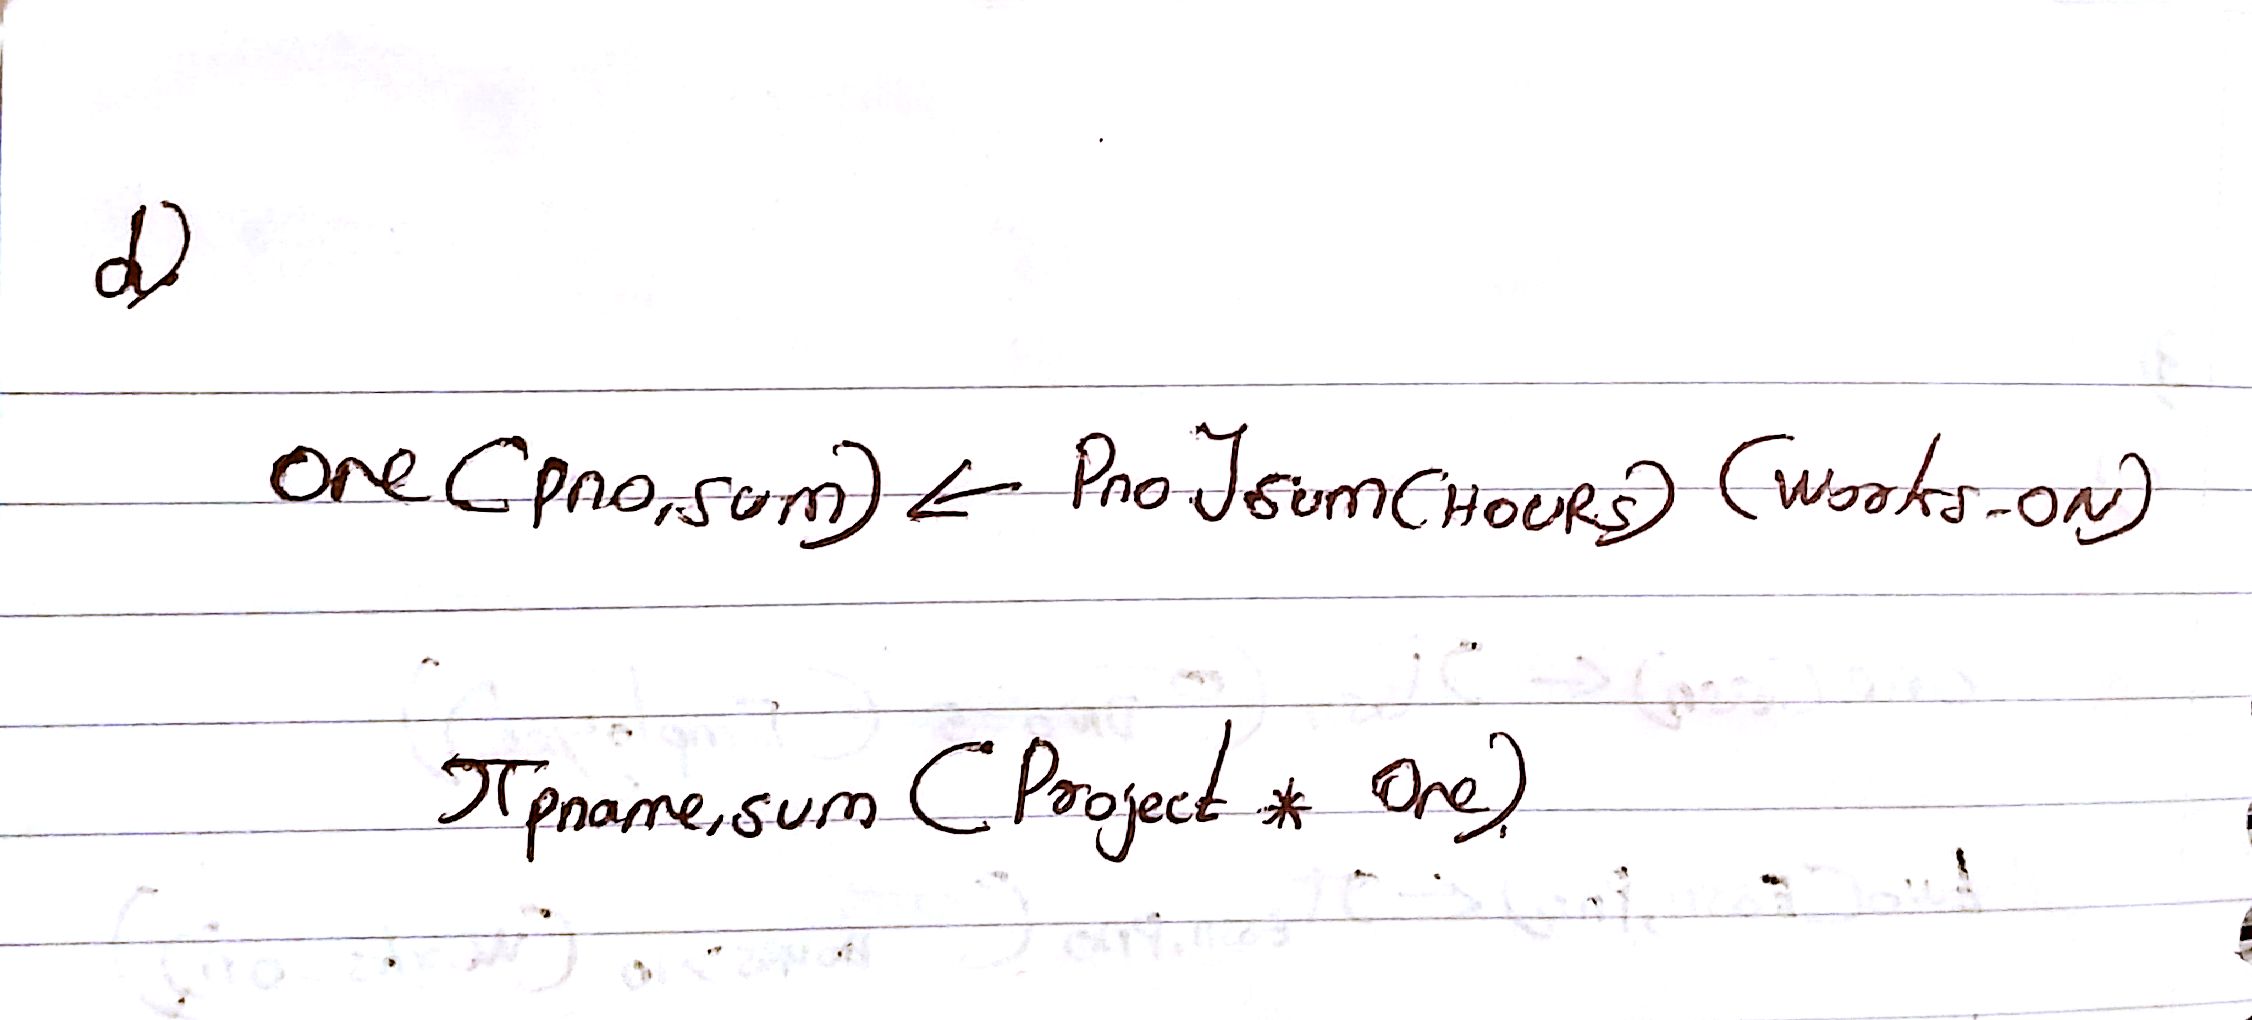 d)
One (pno,sum) ← Pno ℑ sum(HOURS) (Works-ON)
π pname,sum (Project * One)